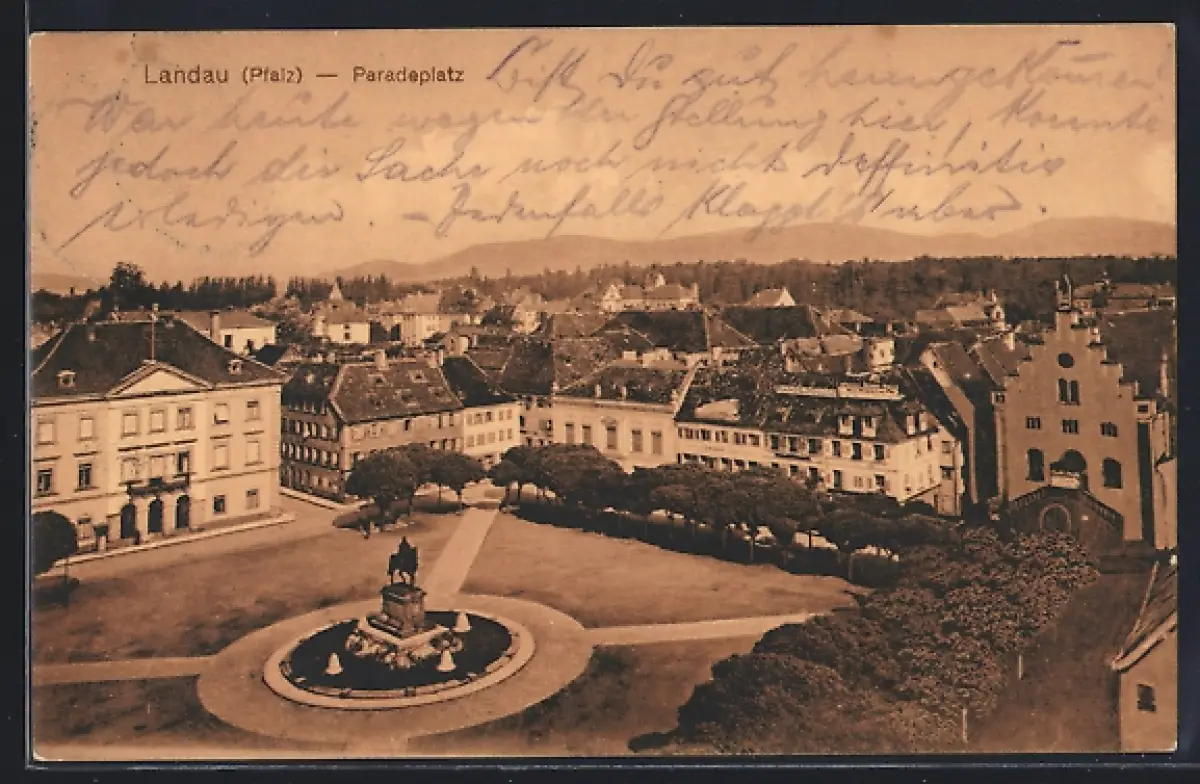 Landau (Pfalz) — Paradeplatz
Bist Du gut heimgekommen
War heute wegen der Stellung hier, konnte
jedoch die Sache noch nicht deffinitiv
erledigen. - Jedenfalls klappt's aber.